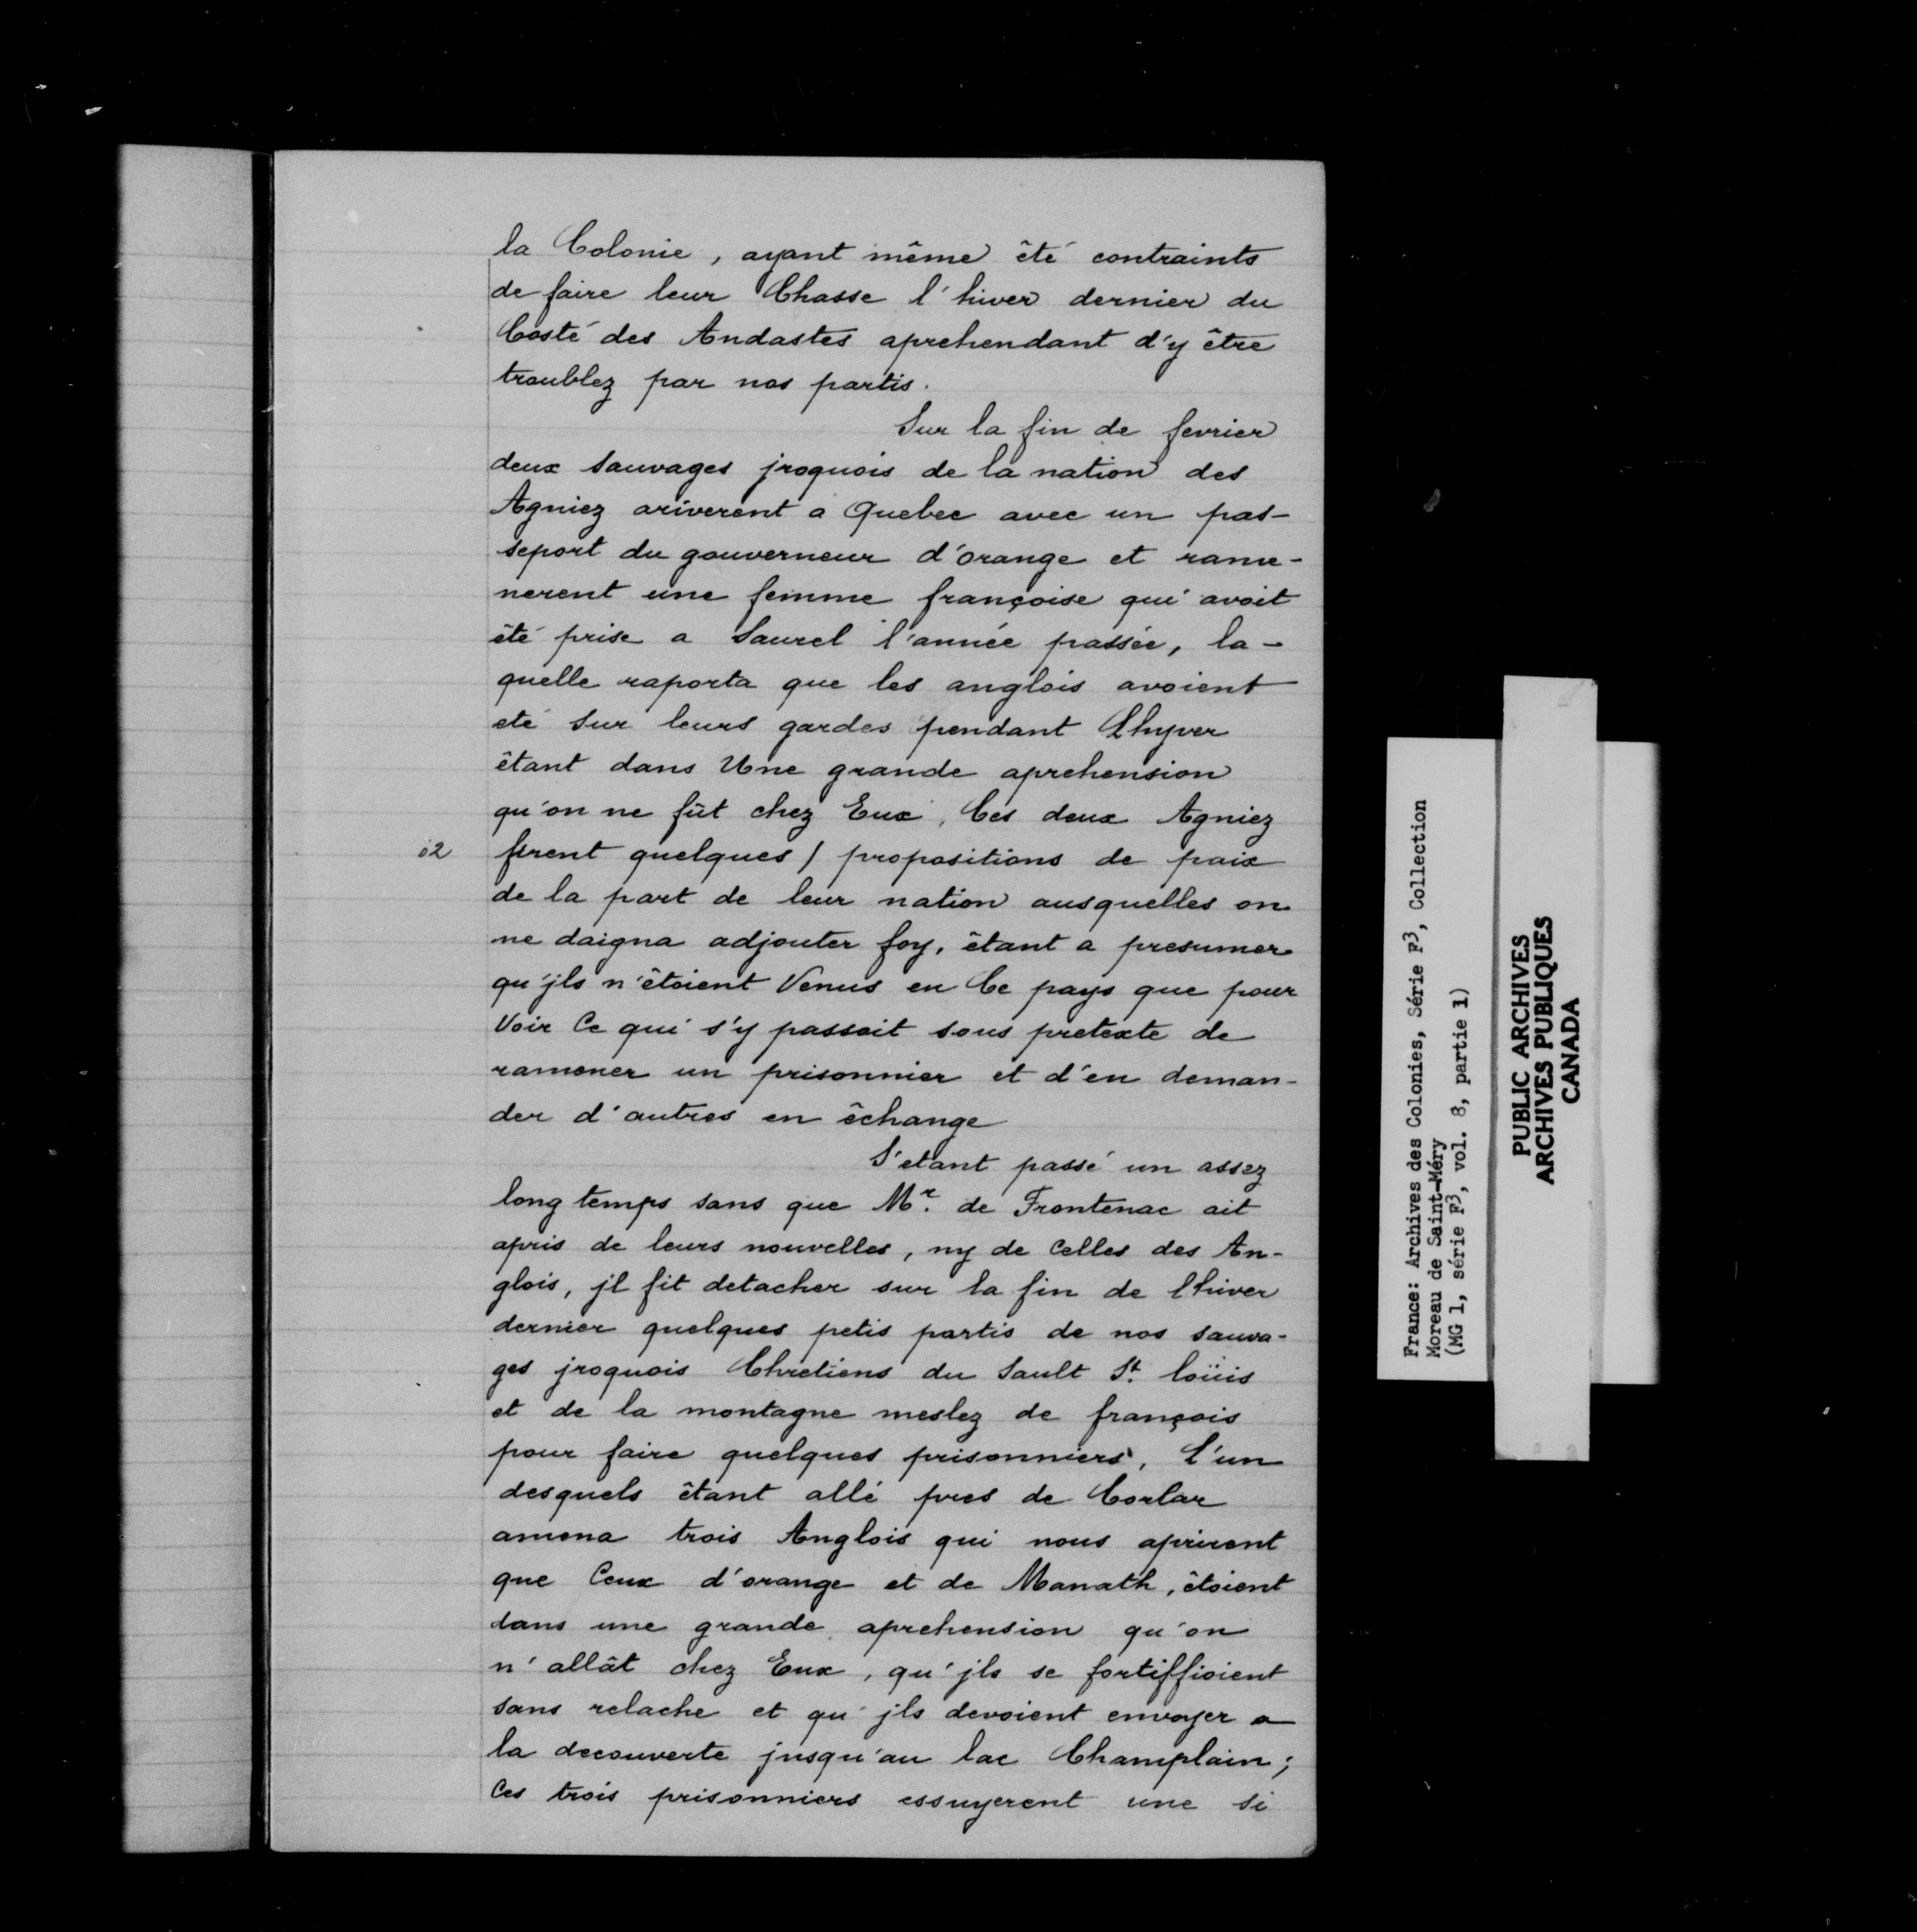 la Colonie, ayant même êté contraints
de faire leur Chasse l'hiver dernier du
Costé des Andastes aprehendant d'y être
troublez par nos partis.
Sur la fin de fevrier
deux sauvages jroquois de la nation des
Agniez ariverent a Quebec avec un pas-
seport du gouverneur d'orange et rame-
nerent une femme françoise qui avoit
êté prise a Saurel l'année passée, la-
quelle raporta que les anglois avoient
eté sur leurs gardes pendant Lhyver
êtant dans Une grande aprehension
qu'on ne fût chez Eux, Ces deux Agniez
02 firent quelques / propositions de paix
de la part de leur nation ausquelles on
ne daigna adjouter foy, êtant a presumer
qu'jls n'êtoient Venus en Ce pays que pour
Voir Ce qui s'y passoit sous pretexte de
ramener un prisonnier et d'en deman-
der d'autres en êchange
S'etant passé un assez
long temps sans que Mr. de Frontenac ait
apris de leurs nouvelles, ny de Celles des An-
glois, jl fit detacher sur la fin de lhiver
dernier quelques petis partis de nos sauva-
ges jroquois Chretiens du Sault St. loüis
et de la montagne meslez de françois
pour faire quelques prisonniers, L'un
desquels êtant allé pres de Corlar
amena trois Anglois qui nous aprirent
que Ceux d'orange et de Manath, êtoient
dans une grande aprehension qu'on
n'allât chez Eux, qu'jls se fortiffioient
sans relache et qu'jls devoient envoyer a
la decouverte jusqu'au lac Champlain;
Ces trois prisonniers essuyerent une si
France: Archives des Colonies, Série F3, Collection
Moreau de Saint-Méry
(MG 1, série F3, vol. 8, partie 1)
PUBLIC ARCHIVES
ARCHIVES PUBLIQUES
CANADA